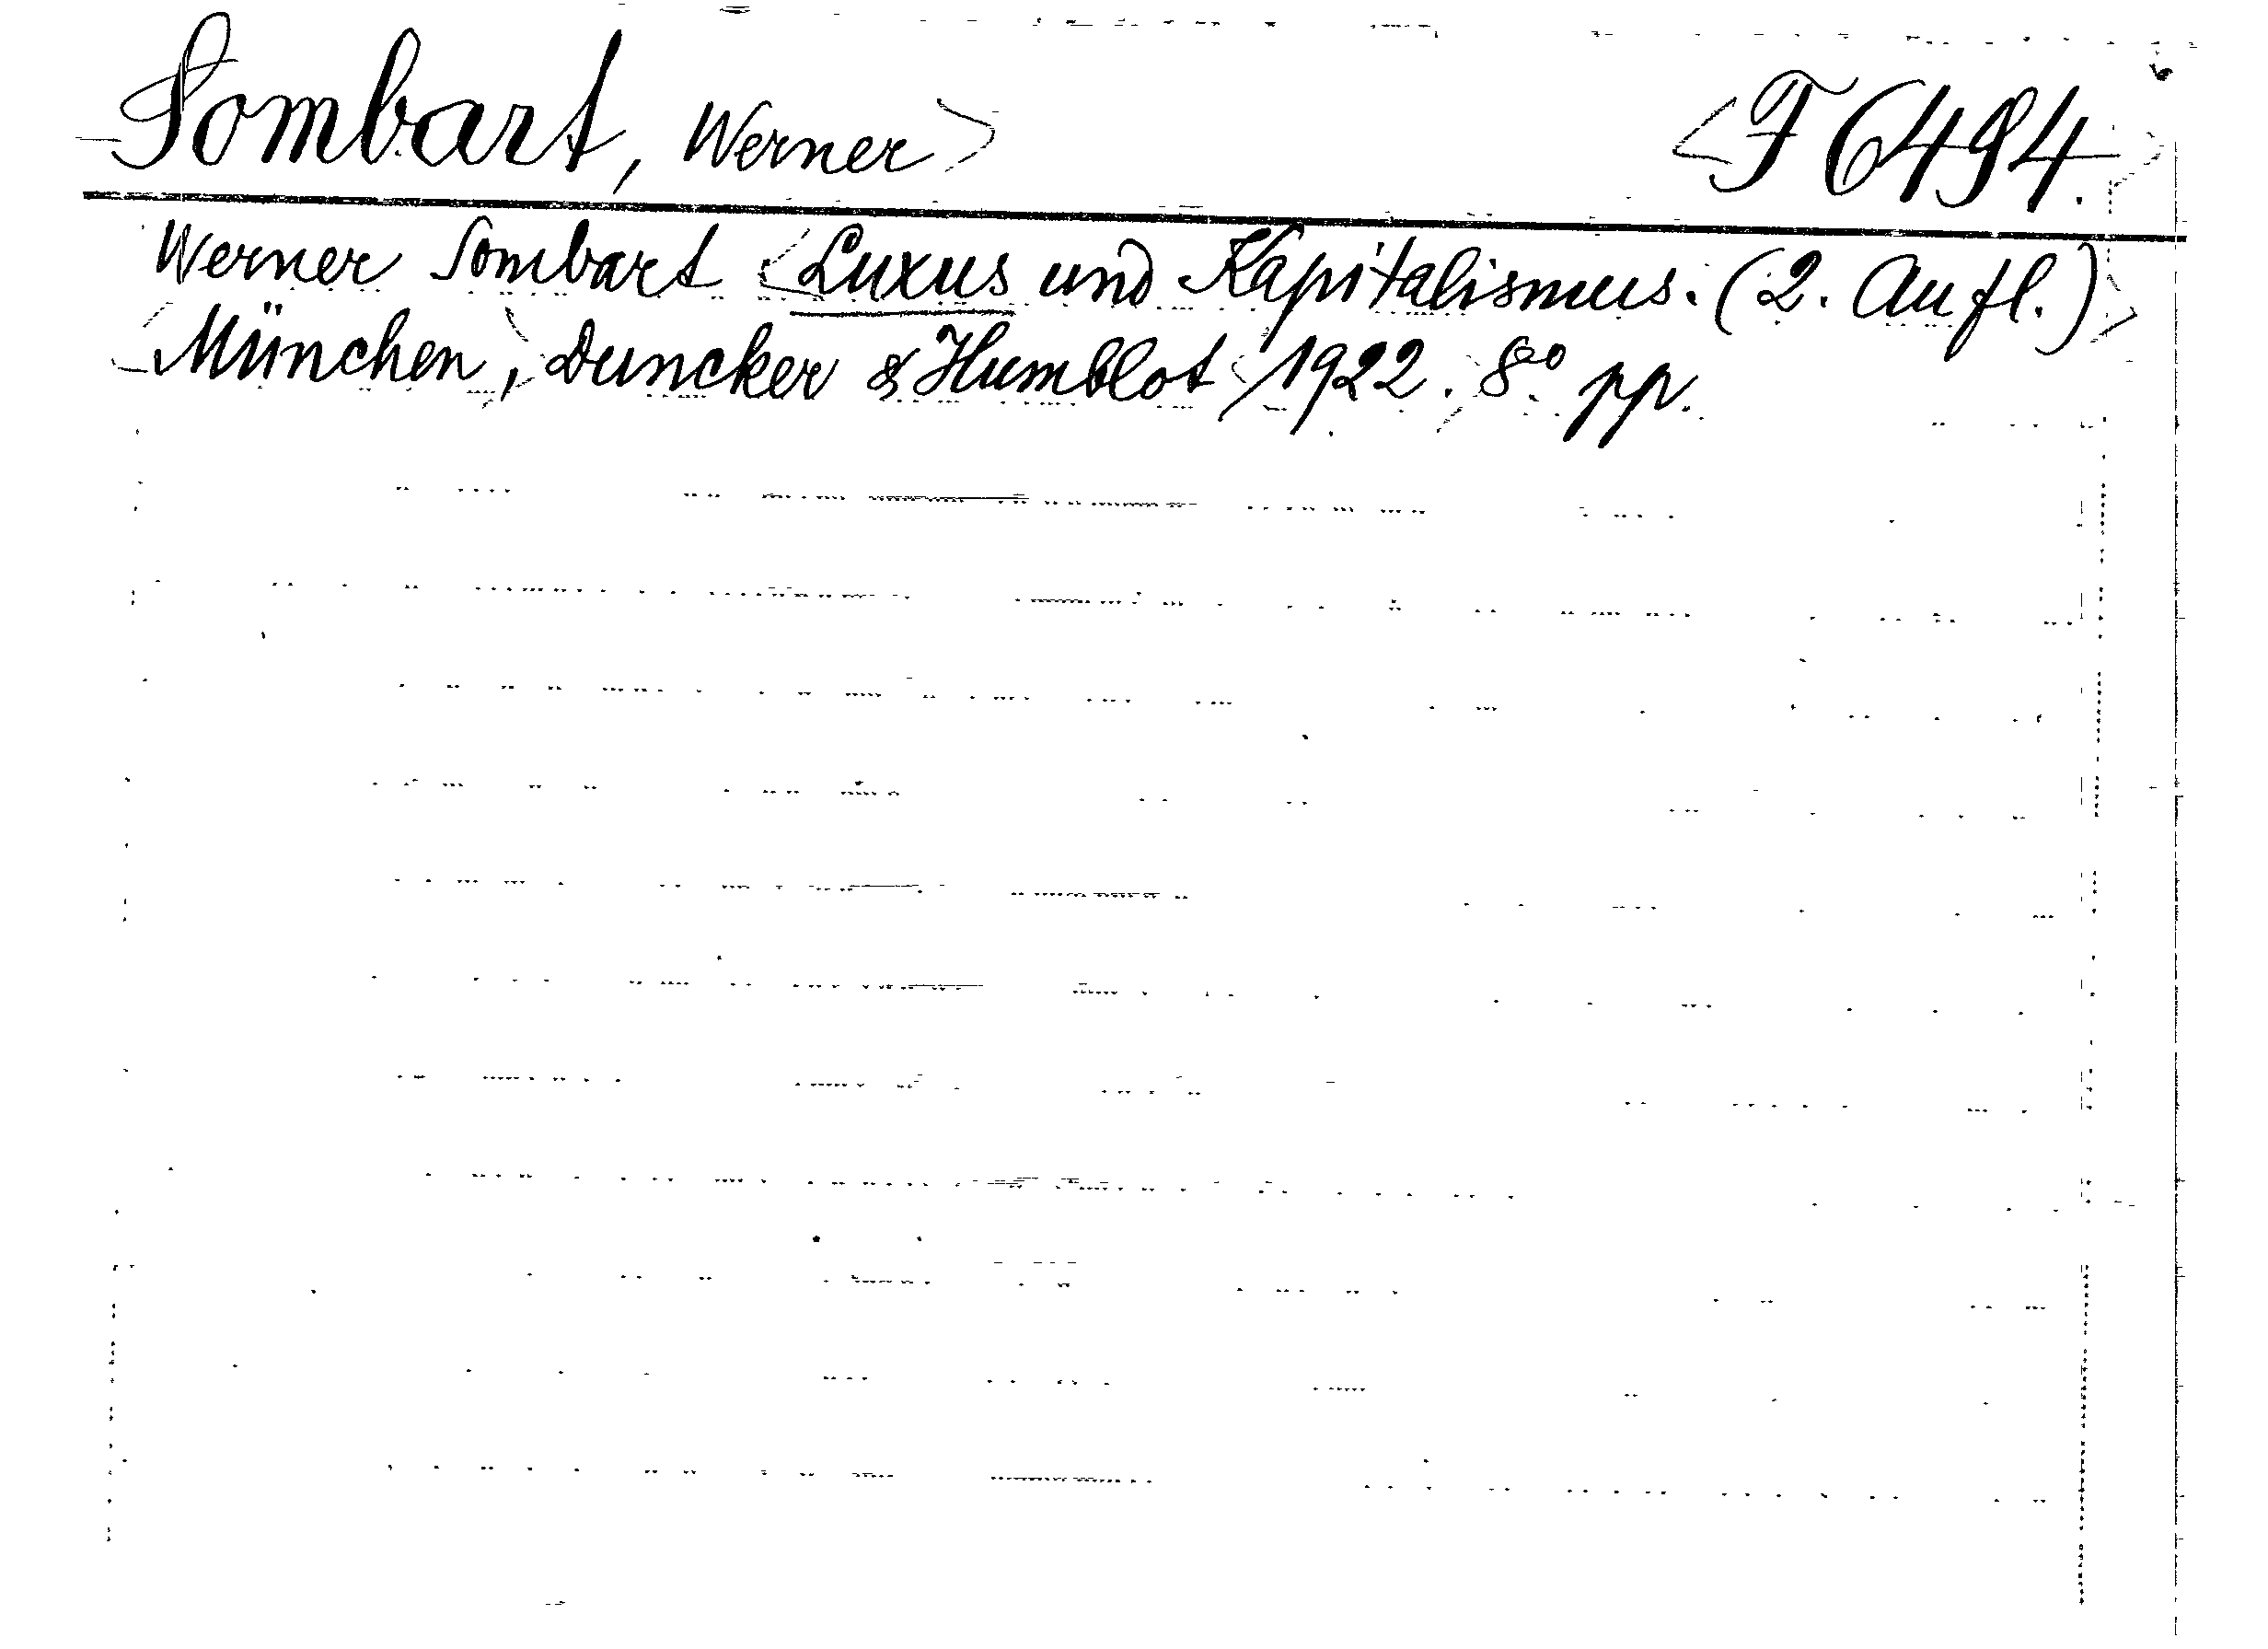 Sombart, Werner F 6494.
Werner Sombart Luxus und Kapitalismus. (2. Aufl.)
München, Duncker & Humblot 1922. 8° pp.